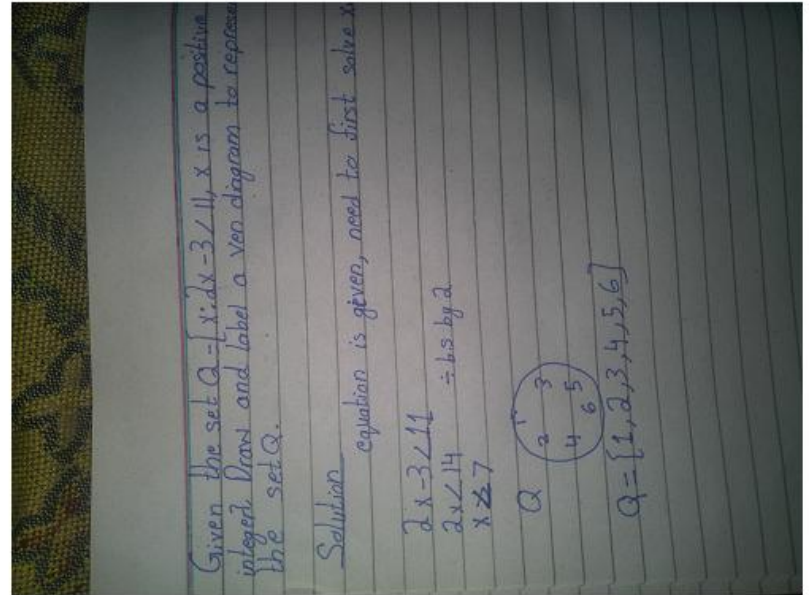 Given the set Q = [x:2x-3<11, x is a positive
integer]. Draw and label a ven diagram to represen
the set Q.
Solution
equation is given, need to first solve x
2x-3<11
2x<14 ÷ b.s by 2
x<7
Q
1
2 3
4 5
6
Q = [1,2,3,4,5,6]